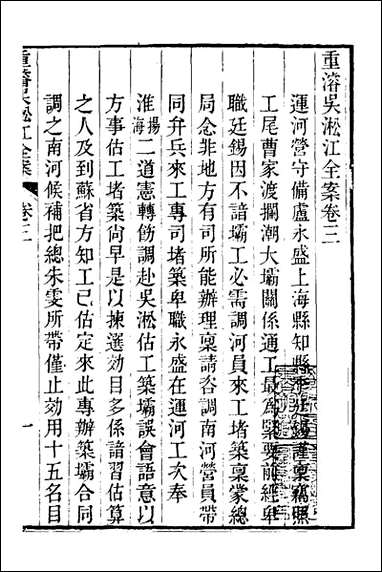 重濬吳淞江全案卷三
運河營守備盧永盛上海縣知縣李廷錫謹稟竊照
工尾曹家渡攔潮大壩關係通工最為緊要前經卑
職廷錫因不諳壩工必需調河員來工堵築稟蒙總
局念非地方有司所能辦理稟請咨調南河營員帶
同弁兵來工專司堵築卑職永盛在運河工次奉
淮揚海二道憲轉飭調赴吳淞估工築壩誤會語意以
方事估工堵築尚早是以揀選効目多係諳習估算
之人及到蘇省方知工已估定來此專辦築壩合同
調之南河候補把總朱雯所帶僅止効用十五名目
重濬吳淞江全案
卷三
一